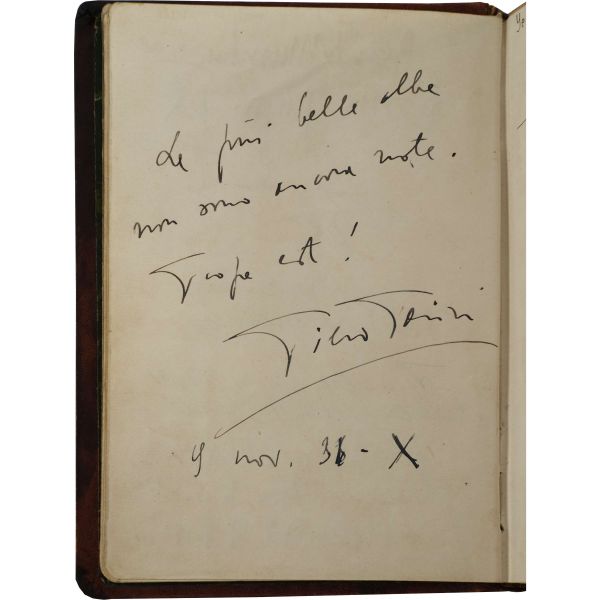 Le più belle albe
non sono ancora nate.
Prope est!
Piero Parini
9 nov. 31 - X